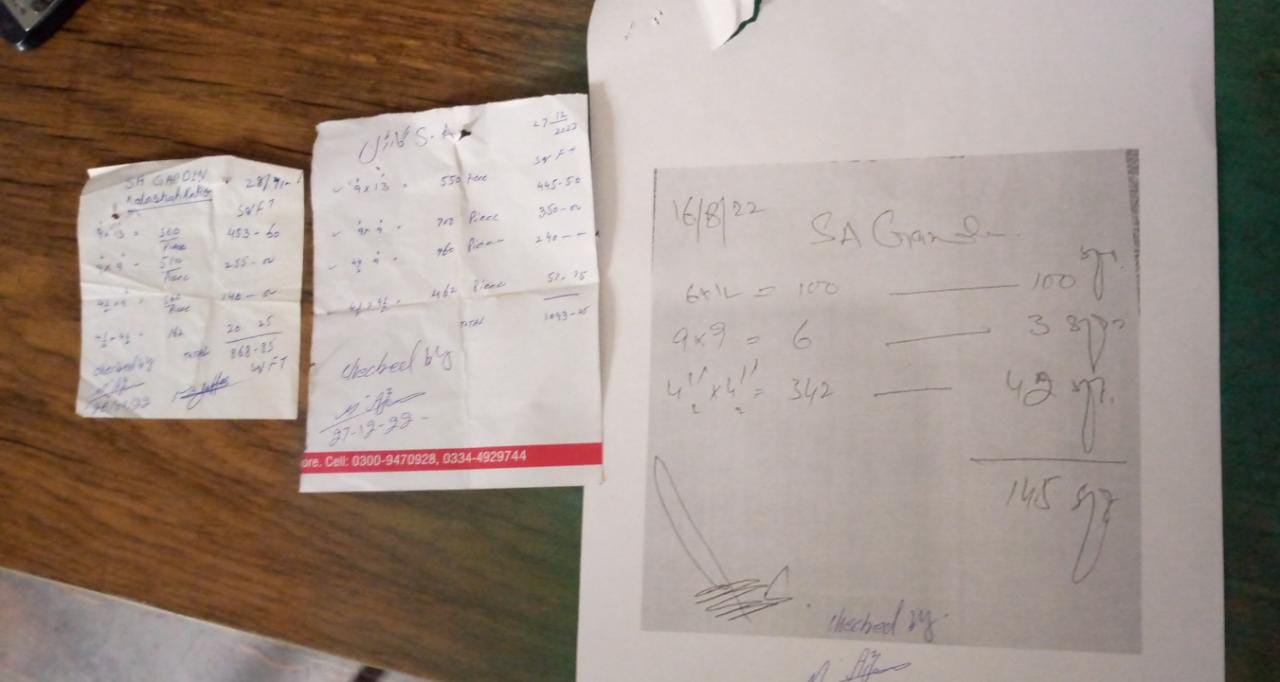 SA GARDIN
28/
SQFT
9x13 = 560 Piece 453-60
9x9 = 510 Piece 255-00
4½x9 = 560 Piece 140-00
4½x4½ = 162 20 25
TOTAL 868-85
SQFT
checked by
S.A
27 12/2022
SQFT
9x13 = 550 Piece 445-50
9x9 = 700 Piece 350-00
4½ 9 = 960 Piece 240--
4½x4½ = 462 Piece 57-75
TOTAL 1093-25
checked by
27-12-22-
ore. Cell: 0300-9470928, 0334-4929744
16/8/22
SA Garden
6x12 = 100 100
9x9 = 6 3
4½"x4½" = 342 42
145
checked by